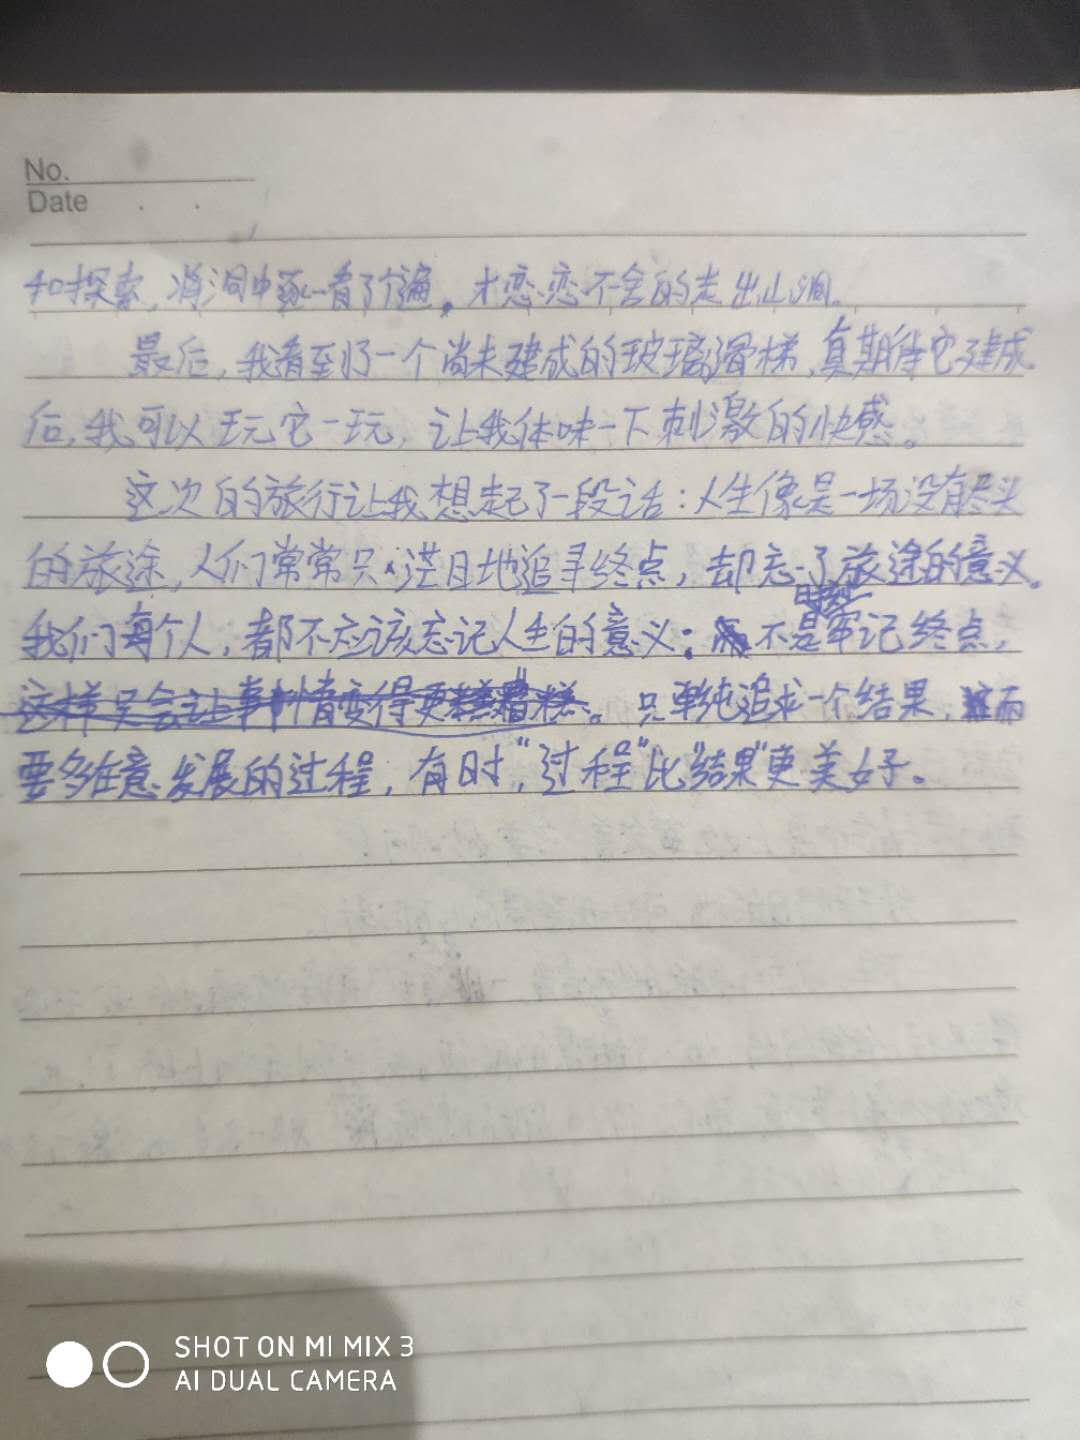 No.
Date
和探索，将洞中逐一看了个遍。才恋恋不舍的走出山洞。
最后，我看到了一个尚未建成的玻璃滑梯，真期待它建成
后，我可以玩它一玩，让我体味一下刺激的快感。
这次的旅行让我想起了一段话：人生像是一场没有尽头
的旅途，人们常常只茫目地追寻终点，却忘了旅途的意义。
我们每个人，都不应该忘记人生的意义：不是牢记终点，
这样只会让事情变得更糟糕。只单纯追求一个结果，而
要多在意发展的过程，有时，“过程”比“结果”更美好。
SHOT ON MI MIX 3
AI DUAL CAMERA